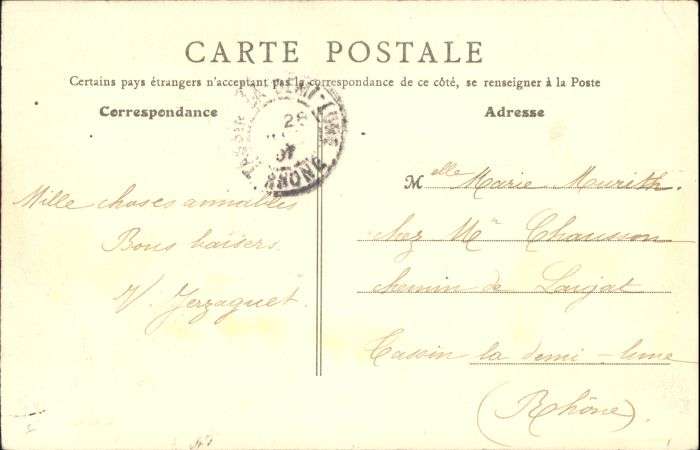 CARTE POSTALE
Certains pays étrangers n'acceptant pas la correspondance de ce côté, se renseigner à la Poste
Correspondance
Adresse
TASSIN LA DEMI-LUNE
28
07
RHONE
Mille choses aimables
Bons baisers
V. Jerzaguet.
Melle Marie Mourith.
chez Mr Chausson
chemin de
Tassin la demi-lune
(Rhône).